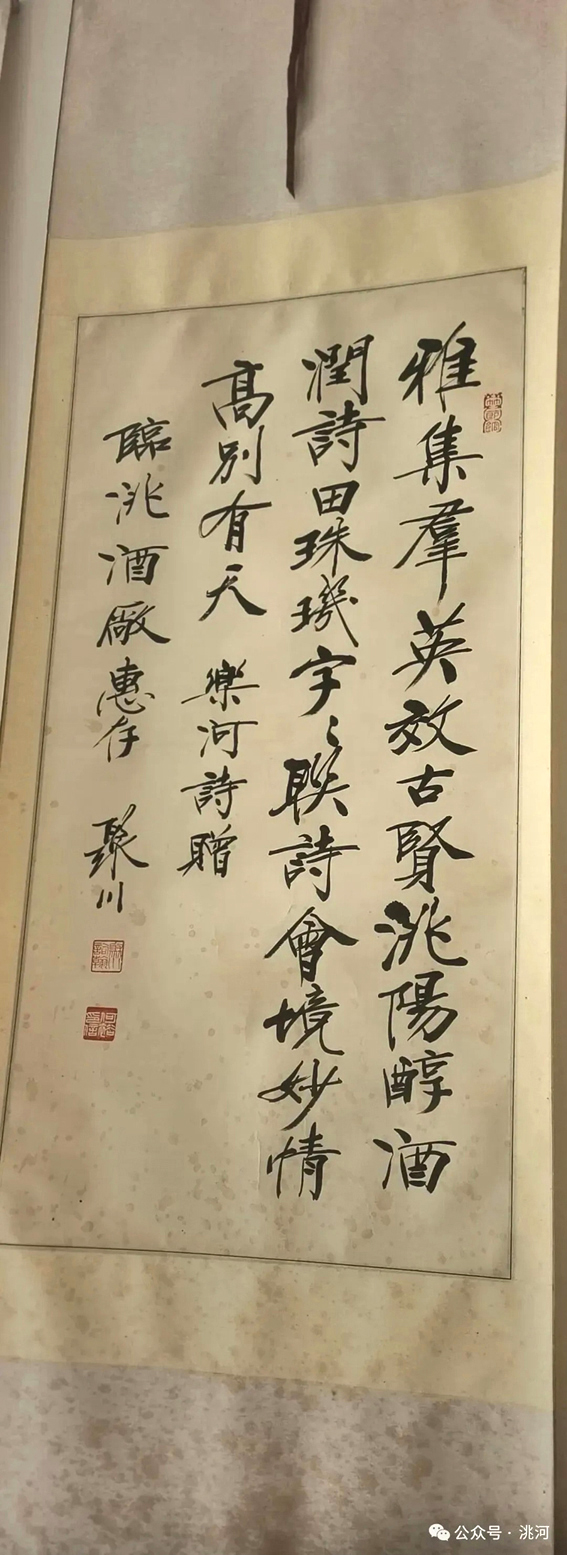 雅集羣英效古賢洮陽醇酒
潤詩田珠璣字〻聯詩會境妙情
高別有天 樂河詩贈
臨洮酒廠惠存 聚川
公众号·洮河